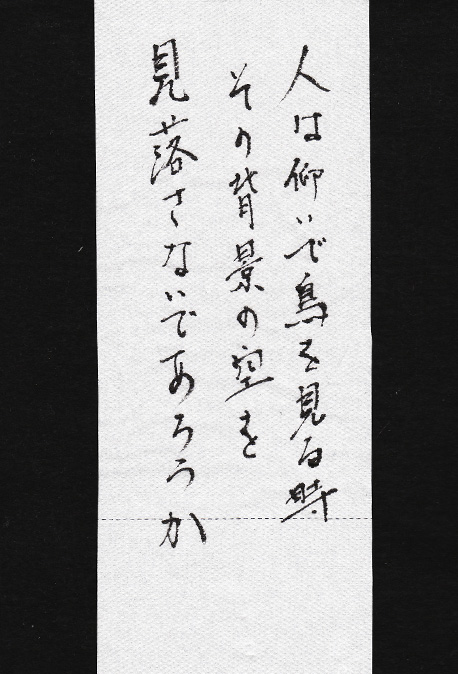 人は仰いで鳥を見る時
その背景の空を
見落さないであろうか